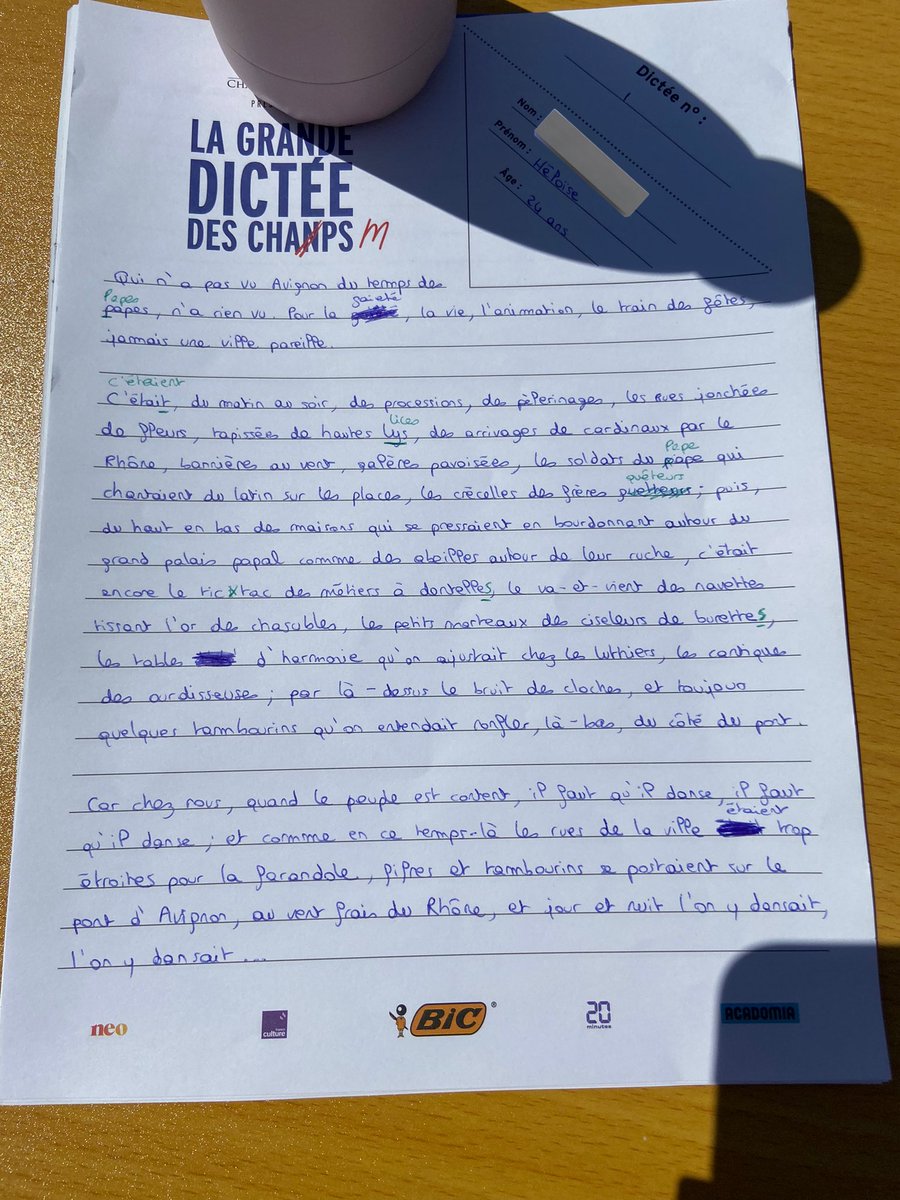 CHA
PRÉS
LA GRANDE
DICTÉE
DES CHANPS m
Dictée n° :
1
Nom :
Prénom : Héloïse
Âge : 24 ans
Qui n'a pas vu Avignon du temps des
Papes gaieté
papes, n'a rien vu. Pour la , la vie, l'animation, le train des fêtes,
jamais une ville pareille.
c'étaient
C'était, du matin au soir, des processions, des pèlerinages, les rues jonchées
lices
de fleurs, tapissées de hautes lys, des arrivages de cardinaux par le
Pape
Rhône, bannières au vent, galères pavoisées, les soldats du pape qui
quêteurs
chantaient du latin sur les places, les crécelles des frères guetteurs ; puis,
du haut en bas des maisons qui se pressaient en bourdonnant autour du
grand palais papal comme des abeilles autour de leur ruche, c'était
encore le tic tac des métiers à dentelles, le va-et-vient des navettes
tissant l'or de chasubles, les petits marteaux des ciseleurs de burettes,
les tables d'harmonie qu'on ajustait chez les luthiers, les cantiques
des ourdisseuses ; par là-dessus le bruit des cloches, et toujours
quelques tambourins qu'on entendait ronfler, là-bas, du côté du pont.
Car chez nous, quand le peuple est content, il faut qu'il danse, il faut
étaient
qu'il danse ; et comme en ce temps-là les rues de la ville trop
étroites pour la farandole, fifres et tambourins se postaient sur le
pont d'Avignon, au vent frais du Rhône, et jour et nuit l'on y dansait,
l'on y dansait ...
neo
france culture
BiC ®
20 minutes
ACADOMIA